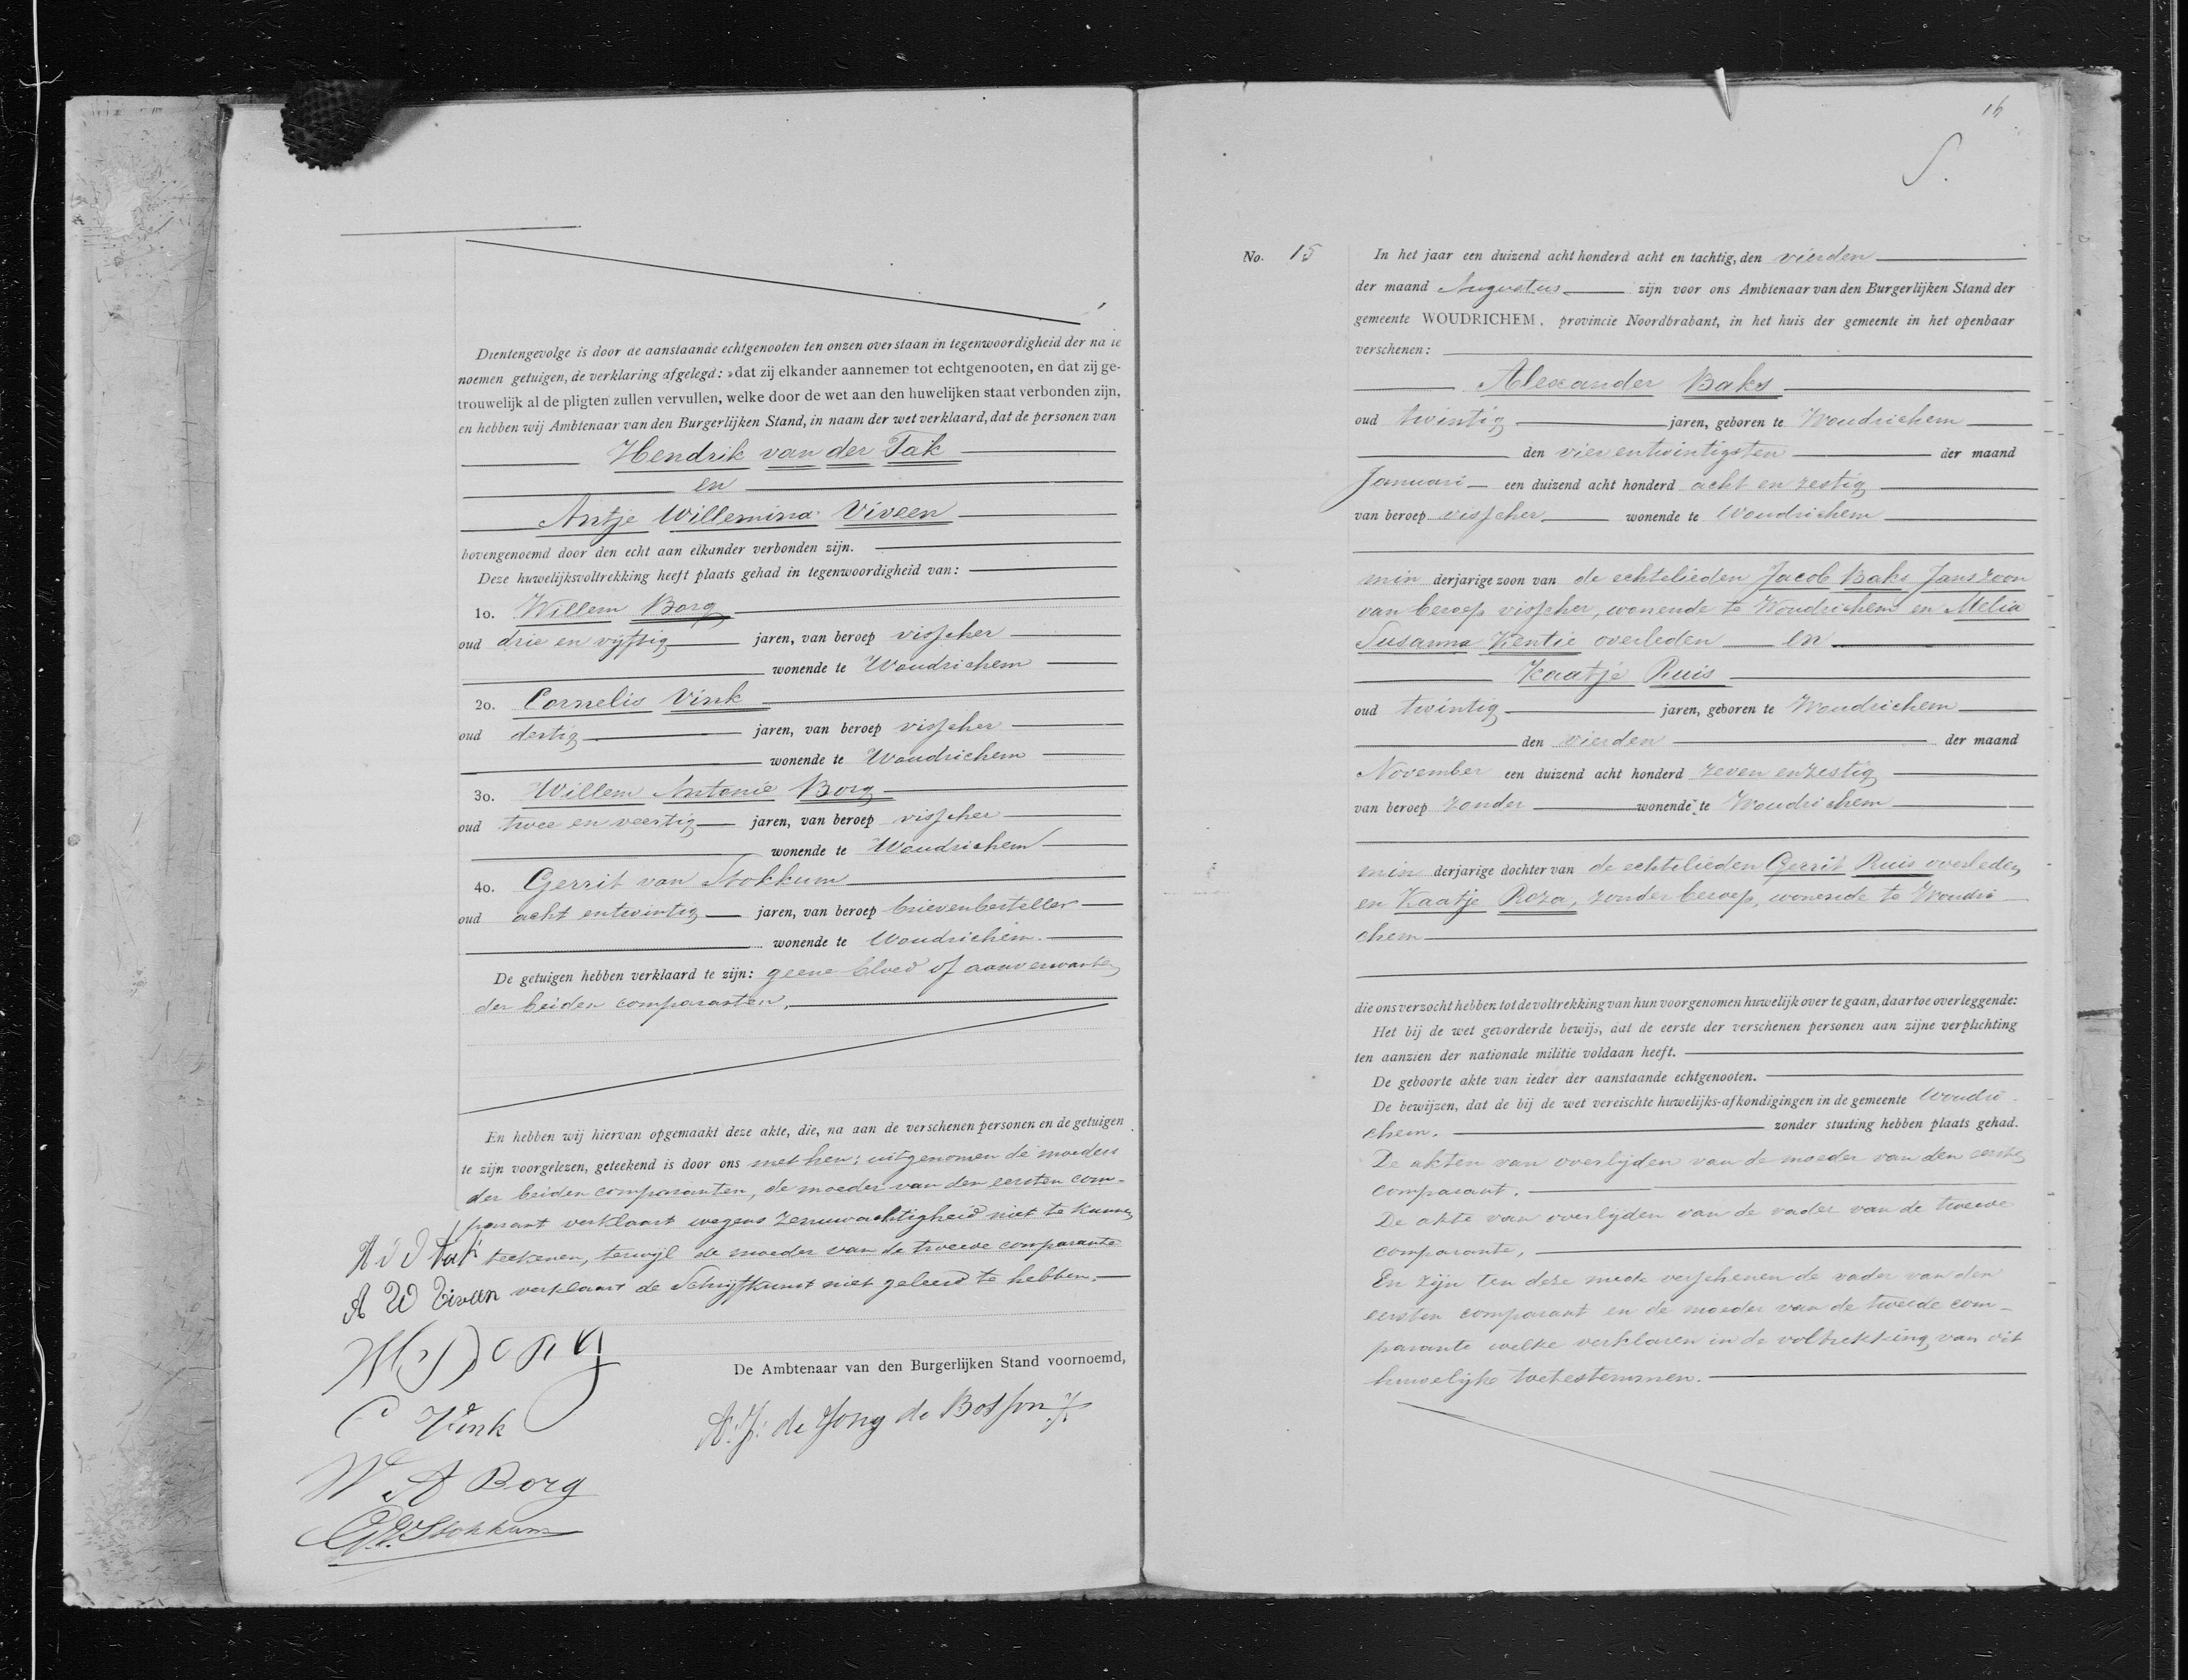 Dientengevolge is door de aanstaande echtgenooten ten onzen overstaan in tegenwoordigheid der na te
noemen getuigen, de verklaring afgelegd: »dat zij elkander aannemen tot echtgenooten, en dat zij ge-
trouwelijk al de pligten zullen vervullen, welke door de wet aan den huwelijken staat verbonden zijn,
en hebben wij Ambtenaar van den Burgerlijken Stand, in naam der wet verklaard, dat de personen van
Hendrik van der Tak
en
Antje Willemina Viveen
bovengenoemd door den echt aan elkander verbonden zijn.
Deze huwelijksvoltrekking heeft plaats gehad in tegenwoordigheid van:
1o. Willem Borg
oud drie en vijftig jaren, van beroep visscher
wonende te Woudrichem
2o. Cornelis Vink
oud dertig jaren, van beroep visscher
wonende te Woudrichem
3o. Willem Antonie Borg
oud twee en veertig jaren, van beroep visscher
wonende te Woudrichem
4o. Gerrit van Stokkum
oud acht entwintig jaren, van beroep brievenbesteller
wonende te Woudrichem.
De getuigen hebben verklaard te zijn: geene bloed of aanverwanten
der beiden comparanten.
En hebben wij hiervan opgemaakt deze akte, die, na aan de verschenen personen en de getuigen
te zijn voorgelezen, geteekend is door ons met hen; uitgenomen de moeders
der beiden comparanten, de moeder van den eersten com-
parant verklaart wegens zenuwachtigheid niet te kunnen
teekenen, terwijl de moeder van de tweede comparante
verklaart de Schrijfkunst niet geleerd te hebben.
A W Viveen
De Ambtenaar van den Burgerlijken Stand voornoemd,
C Vink
W A Borg
G.v.Stokkum
16
No. 15
In het jaar een duizend acht honderd acht en tachtig, den vierden
der maand Augustus zijn voor ons Ambtenaar van den Burgerlijken Stand der
gemeente WOUDRICHEM, provincie Noordbrabant, in het huis der gemeente in het openbaar
verschenen:
Alexander Baks
oud twintig jaren, geboren te Woudrichem
den vier entwintigsten der maand
Januari een duizend acht honderd acht en zestig
van beroep visscher wonende te Woudrichem
min derjarige zoon van de echtelieden Jacob Baks Janszoon
van beroep visscher, wonende te Woudrichem en Melia
Susanna Kentie overleden en
Kaatje Ruis
oud twintig jaren, geboren te Woudrichem
den vierden der maand
November een duizend acht honderd zeven enzestig
van beroep zonder wonende te Woudrichem
min derjarige dochter van de echtelieden Gerrit Ruis overleden
en Kaatje Roza, zonder beroep, wonende te Woudri
chem
die ons verzocht hebben tot de voltrekking van hun voorgenomen huwelijk over te gaan, daartoe overleggende:
Het bij de wet gevorderde bewijs, dat de eerste der verschenen personen aan zijne verplichting
ten aanzien der nationale militie voldaan heeft.
De geboorte akte van ieder der aanstaande echtgenooten.
De bewijzen, dat de bij de wet vereischte huwelijks-afkondigingen in de gemeente Woudri-
chem. zonder stuiting hebben plaats gehad.
De akten van overlijden van de moeder van den eersten
comparant.
De akte van overlijden van de vader van de tweede
comparante.
En zijn ten deze mede verschenen de vader van den
eersten comparant en de moeder van de tweede com-
parante welke verklaren in de voltrekking van dit
huwelijke toetestemmen.